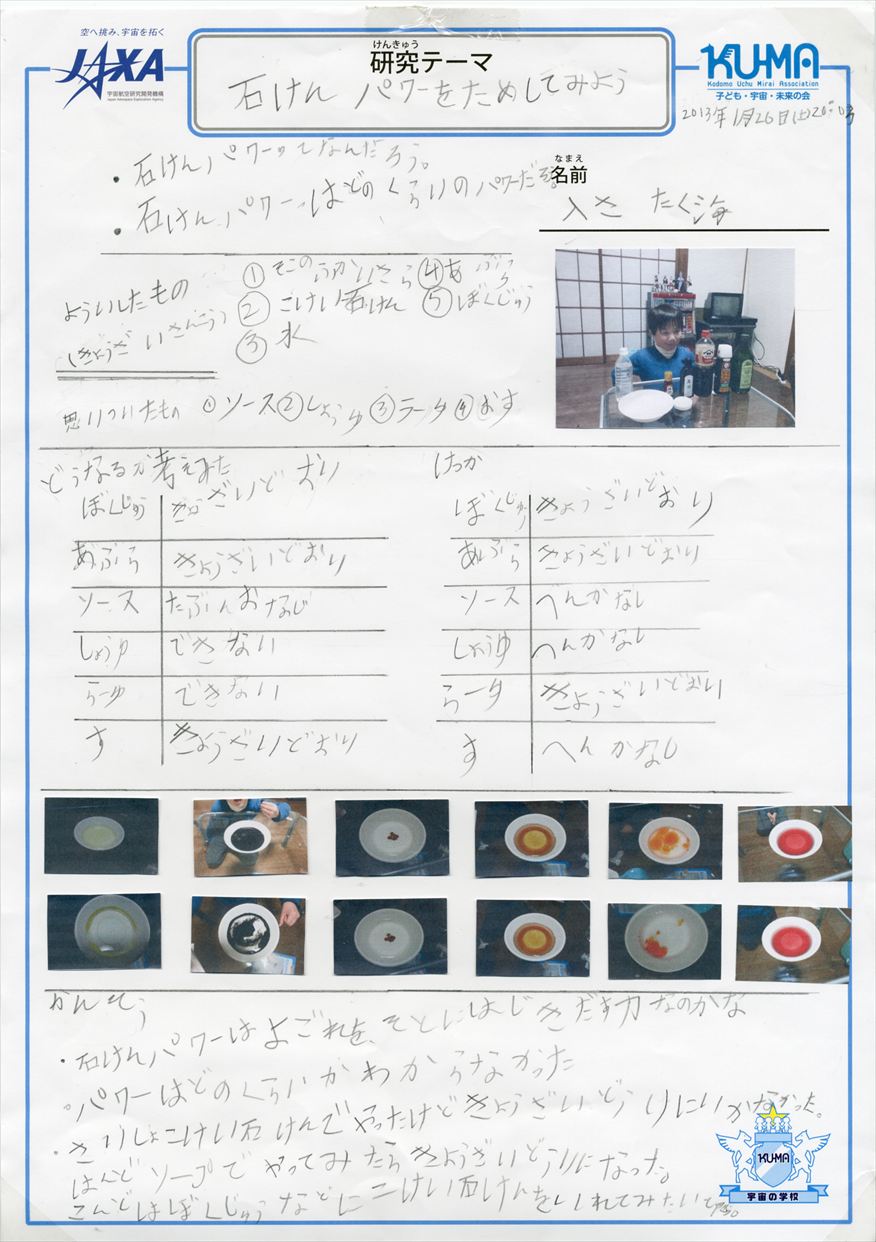 空へ挑み、宇宙を拓く
JAXA
宇宙航空研究開発機構
Japan Aerospace Exploration Agency
けんきゅう
研究テーマ
石けんパワーをためしてみよう
KUMA
Kodomo Uchu Mirai Association
子ども・宇宙・未来の会
2013年1月26日(土)
・石けんパワーってなんだろう。
・石けんパワーはどのくらいのパワーだぞ。
なまえ
名前
入さ たく海
よういしたもの
(きょうざいさんこう)
①そこのふかいさら④あぶら
②こけい石けん⑤ぼくじゅう
③水
思いついたもの ①ソース②しょうゆ③ラータ④おす
どうなるか考えみた
ぼくじゅう きょざいどおり
あぶら きょうざいどおり
ソース たぶんおなじ
しょうゆ できない
らーゆ できない
す きょうざいどおり
けっか
ぼくじゅう きょうざいどおり
あぶら きょうざいどおり
ソース へんかなし
しょうゆ へんかなし
らータ きょうざいどおり
す へんかなし
かんそう
・石けんパワーはよごれを、そとにはじきだす力なのかな
・パワーはどのくらいかわからなかった
・さいしょこけい石けんでやったけどきょうざいどうりにいかなかった。
はんどソープでやってみたらきょうざいどうりになった。
こんどはぼくじゅうなどにこけい石けんをいれてみたい
KUMA
宇宙の学校